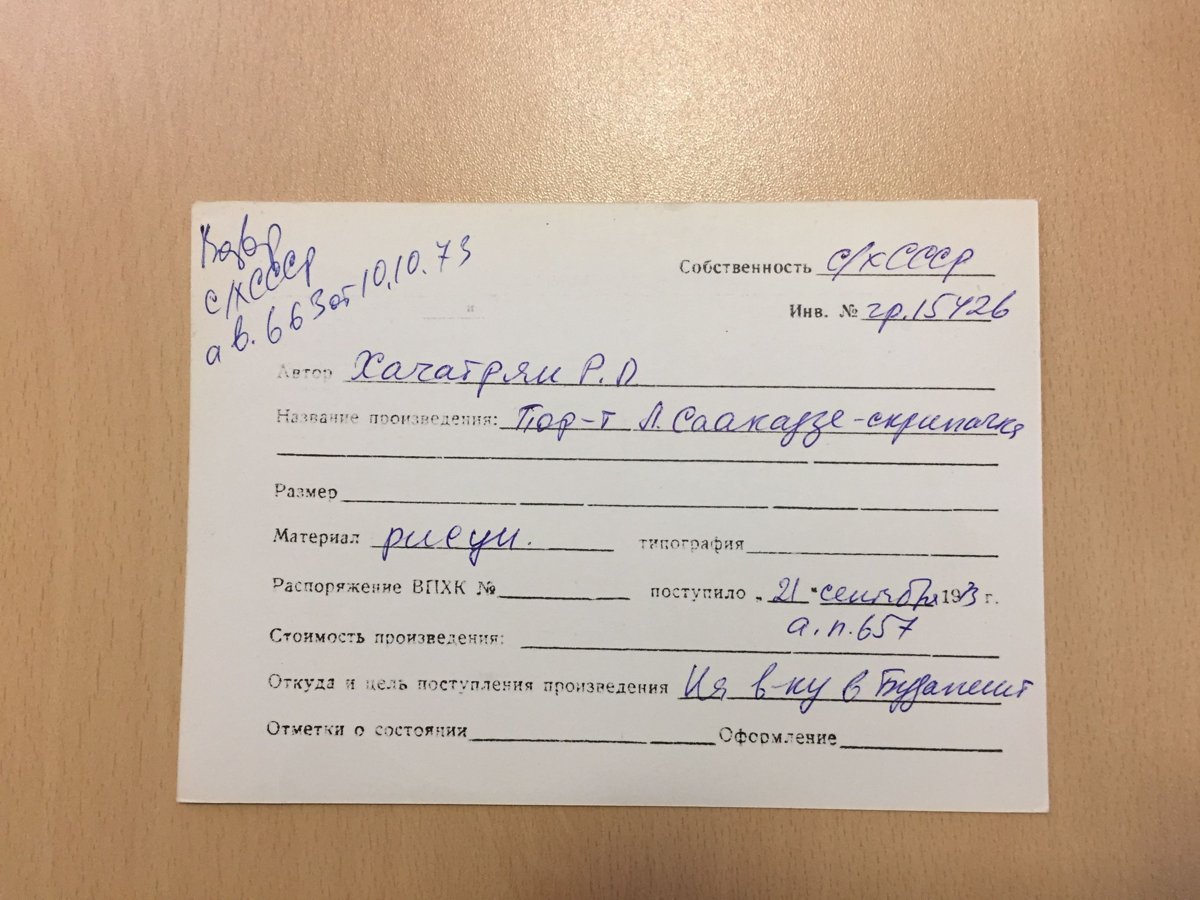 Возвр
с/х СССР
ав. 663 от 10.10.73
Собственность с/х СССР
Инв. № гр. 15426
и
Автор Хачатрян Р. О
Название произведения: Пор-т Л. Саакадзе - скрипачка
Размер
Материал рисун. типография
Распоряжение ВПХК № поступило „ 21 " сентября 1973 г.
а. п. 657
Стоимость произведения:
Откуда и цель поступления произведения На в-ку в Будапешт
Отметки о состоянии Оформление